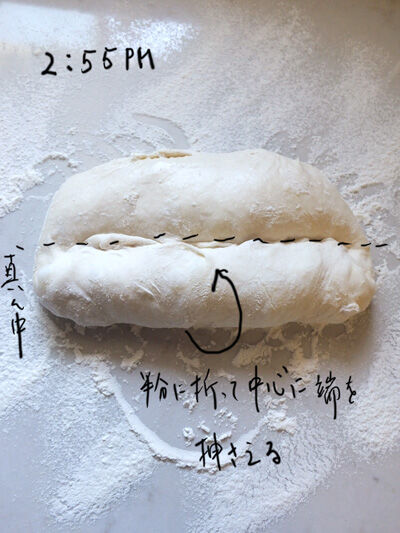 2:55PM
真ん中
半分に折って中心に端を
押さえる